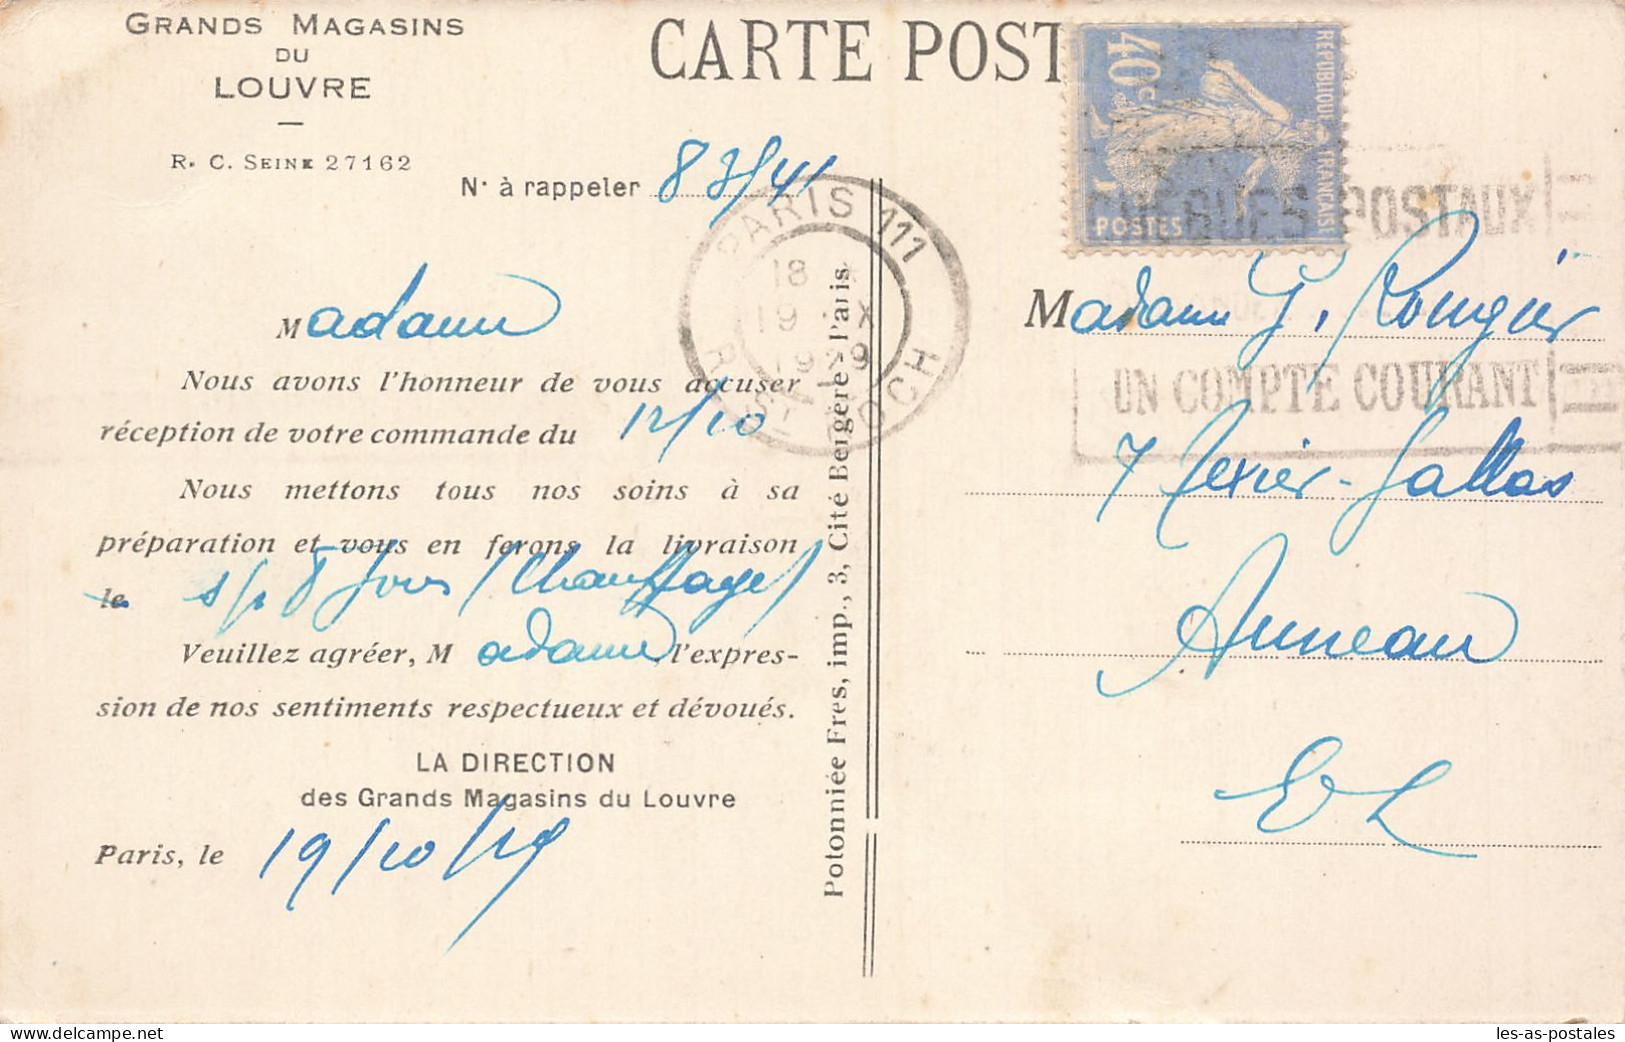 GRANDS MAGASINS
DU
LOUVRE
R. C. SEINE 27162
N° à rappeler 83/41
Madame
Nous avons l'honneur de vous accuser
réception de votre commande du 12/10
Nous mettons tous nos soins à sa
préparation et vous en ferons la livraison
le s/p 8 jours (Chauffage)
Veuillez agréer, Madame, l'expres-
sion de nos sentiments respectueux et dévoués.
LA DIRECTION
des Grands Magasins du Louvre
Paris, le 19/10/29
Potonniée Fres, imp., 3, Cité Bergère - Paris
CARTE POST
40c
REPUBLIQUE FRANÇAISE
POSTES
PARIS 111
18
19 X
1929
R. ST ROCH
CHEQUES POSTAUX
UN COMPTE COURANT
Madame G. Rougier
7 Texier-Gallas
Auneau
E L
Delcampe.net
les-as-postales